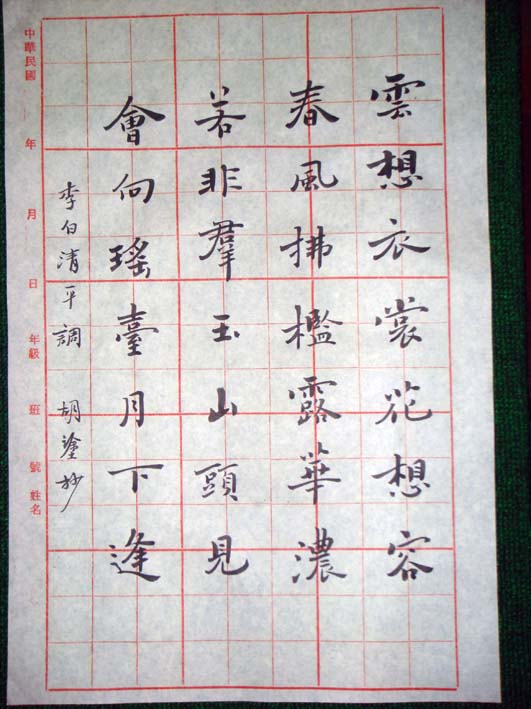 雲想衣裳花想容
春風拂檻露華濃
若非羣玉山頭見
會向瑤臺月下逢
李白清平調 胡塗抄
中華民國 年 月 日 年級 班 號 姓名